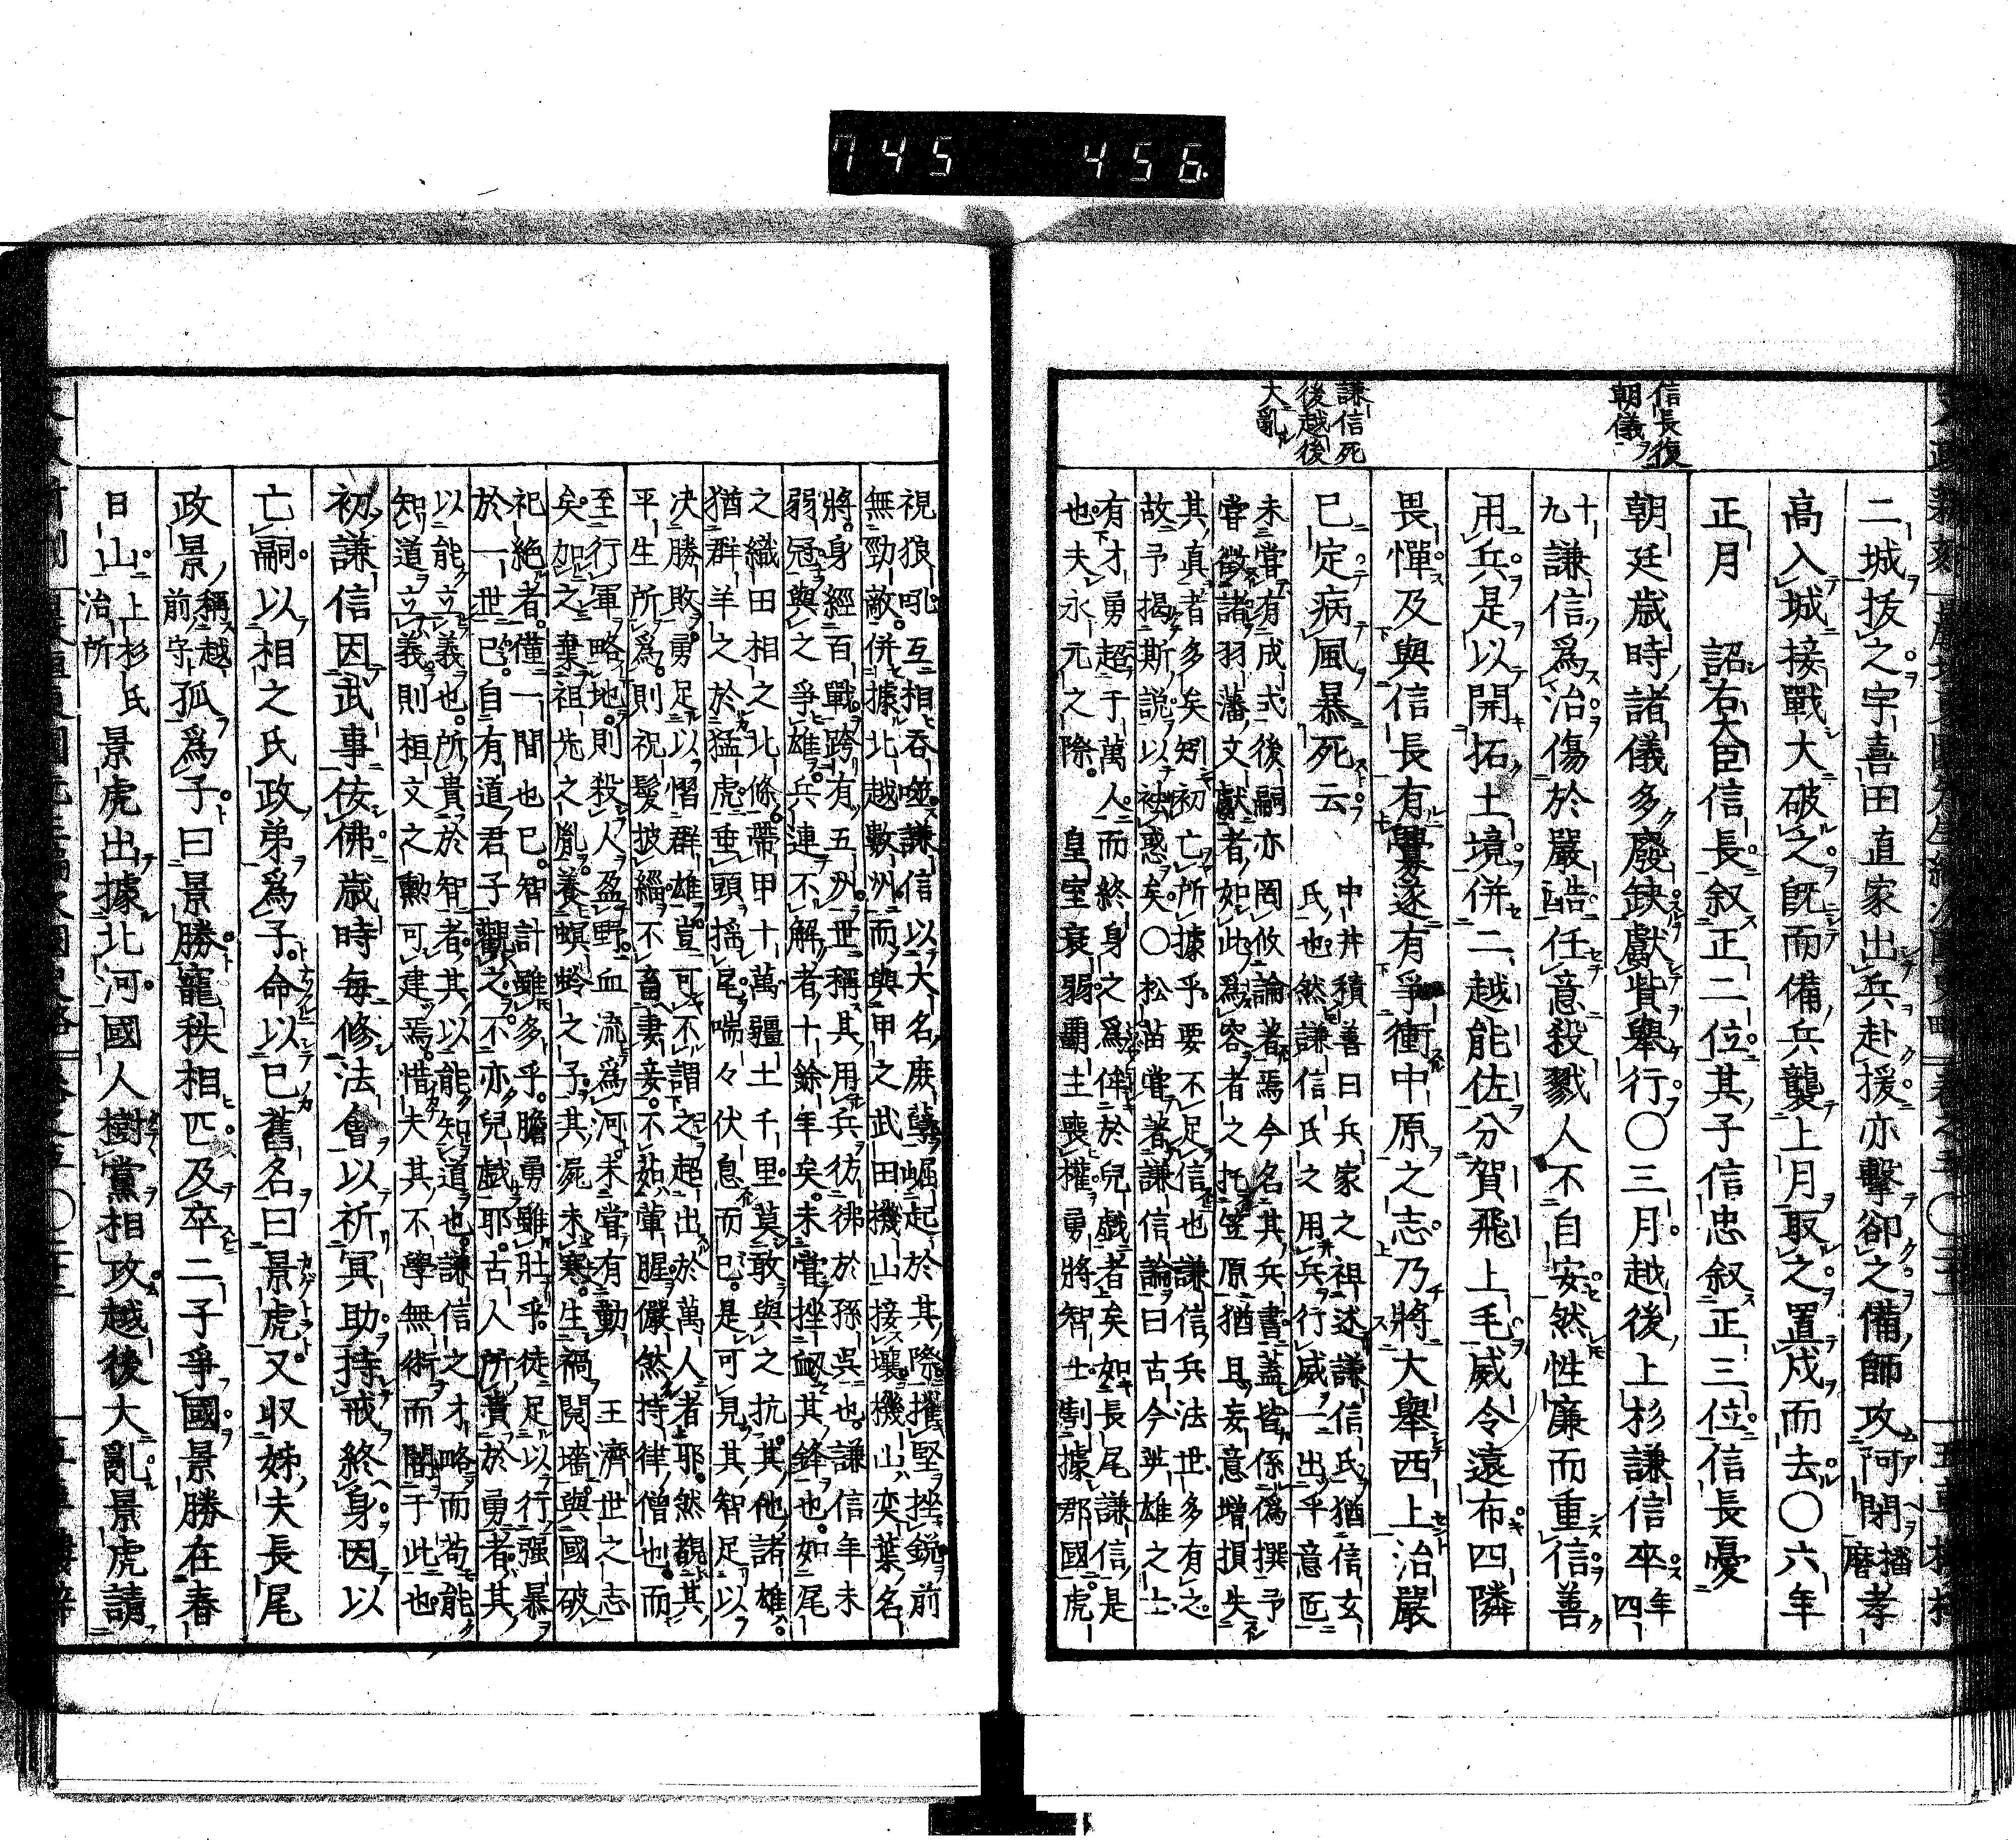 745 456.
信長復
朝儀
謙信死
後越後
大亂
二城抜之宇喜田直家出兵赴援亦擊卻之備師攻阿閉播磨孝
高入城接戰大破之既而備兵襲上月取之置戍而去〇六年
正月 詔右大臣信長叙正二位其子信忠叙正三位信長憂
朝廷歳時諸儀多廢缺獻貲舉行〇三月越後上杉謙信卒年四
十九謙信爲治傷於嚴酷任意殺戮人不自安然性廉而重信善
用兵是以開拓土境併二越能佐分賀飛上毛威令遠布四隣
畏憚及與信長有釁遂有爭衝中原之志乃將大舉西上治嚴
已定病風暴死云
中井積善曰兵家之祖述謙信氏猶信玄
氏也然謙信氏之用兵行威一出乎意匠
未嘗有成式後嗣亦罔攸論著焉今名其兵書蓋皆係偽撰予
嘗徵諸羽藩文獻者如此爲容者之托笠原猶且妄意增損失
其真者多矣矧初亡所據乎要不足信也謙信兵法世多有之
故予揭斯説以袂惑矣〇松苗嘗著謙信論曰古今英雄之士
有才勇超于萬人而終身之爲侔於兒戲者矣如長尾謙信是
也夫永元之際皇室衰弱覇主喪權勇將智士割據郡國虎
視狼吼互相吞噬謙信以大名庶孽崛起於其際摧堅挫鋭前
無勁敵併據北越數州而與甲之武田機山接壤機山奕葉名
將身經百戰跨有五州世稱其用兵彷彿於孫吳也謙信年未
弱冠與之爭雄兵連不解者十餘年矣未嘗挫衄其鋒也如尾
之織田相之北條帶甲十萬疆土千里莫敢與之抗其他諸雄
猶群羊之於猛虎垂頭搖尾喘々伏息而已是可見其智足以
决勝敗勇足以慴群雄豈可不謂之超出於萬人者耶然觀其
平生所爲則祝髮披緇不畜妻妾不茹葷腥儼然持律僧也而
至行軍略地則殺人盈野血流爲河未嘗有動 王濟世之志
矣加之棄祖先之胤養螟蛉之子其屍未寒生禍鬩墻與國破
祀絶者僅一間也已智計雖多乎膽勇雖壯乎徒足以行强暴
於一世已自有道君子觀之不亦兒戲耶古人所貴於勇者其
以能立義也所貴於智者其以能知道也謙信之才略而苟能
知道立義則桓文之勲可建焉惜夫其不學無術而闇于此也
初謙信因武事佞佛歳時毎修法會以祈冥助持戒終身因以
亡嗣以相之氏政弟爲子命以已舊名曰景虎又収姊夫長尾
政景稱越前守孤爲子曰景勝寵秩相匹及卒二子爭國景勝在春
日山上杉氏治所景虎出據北河國人樹黨相攻越後大亂景虎請